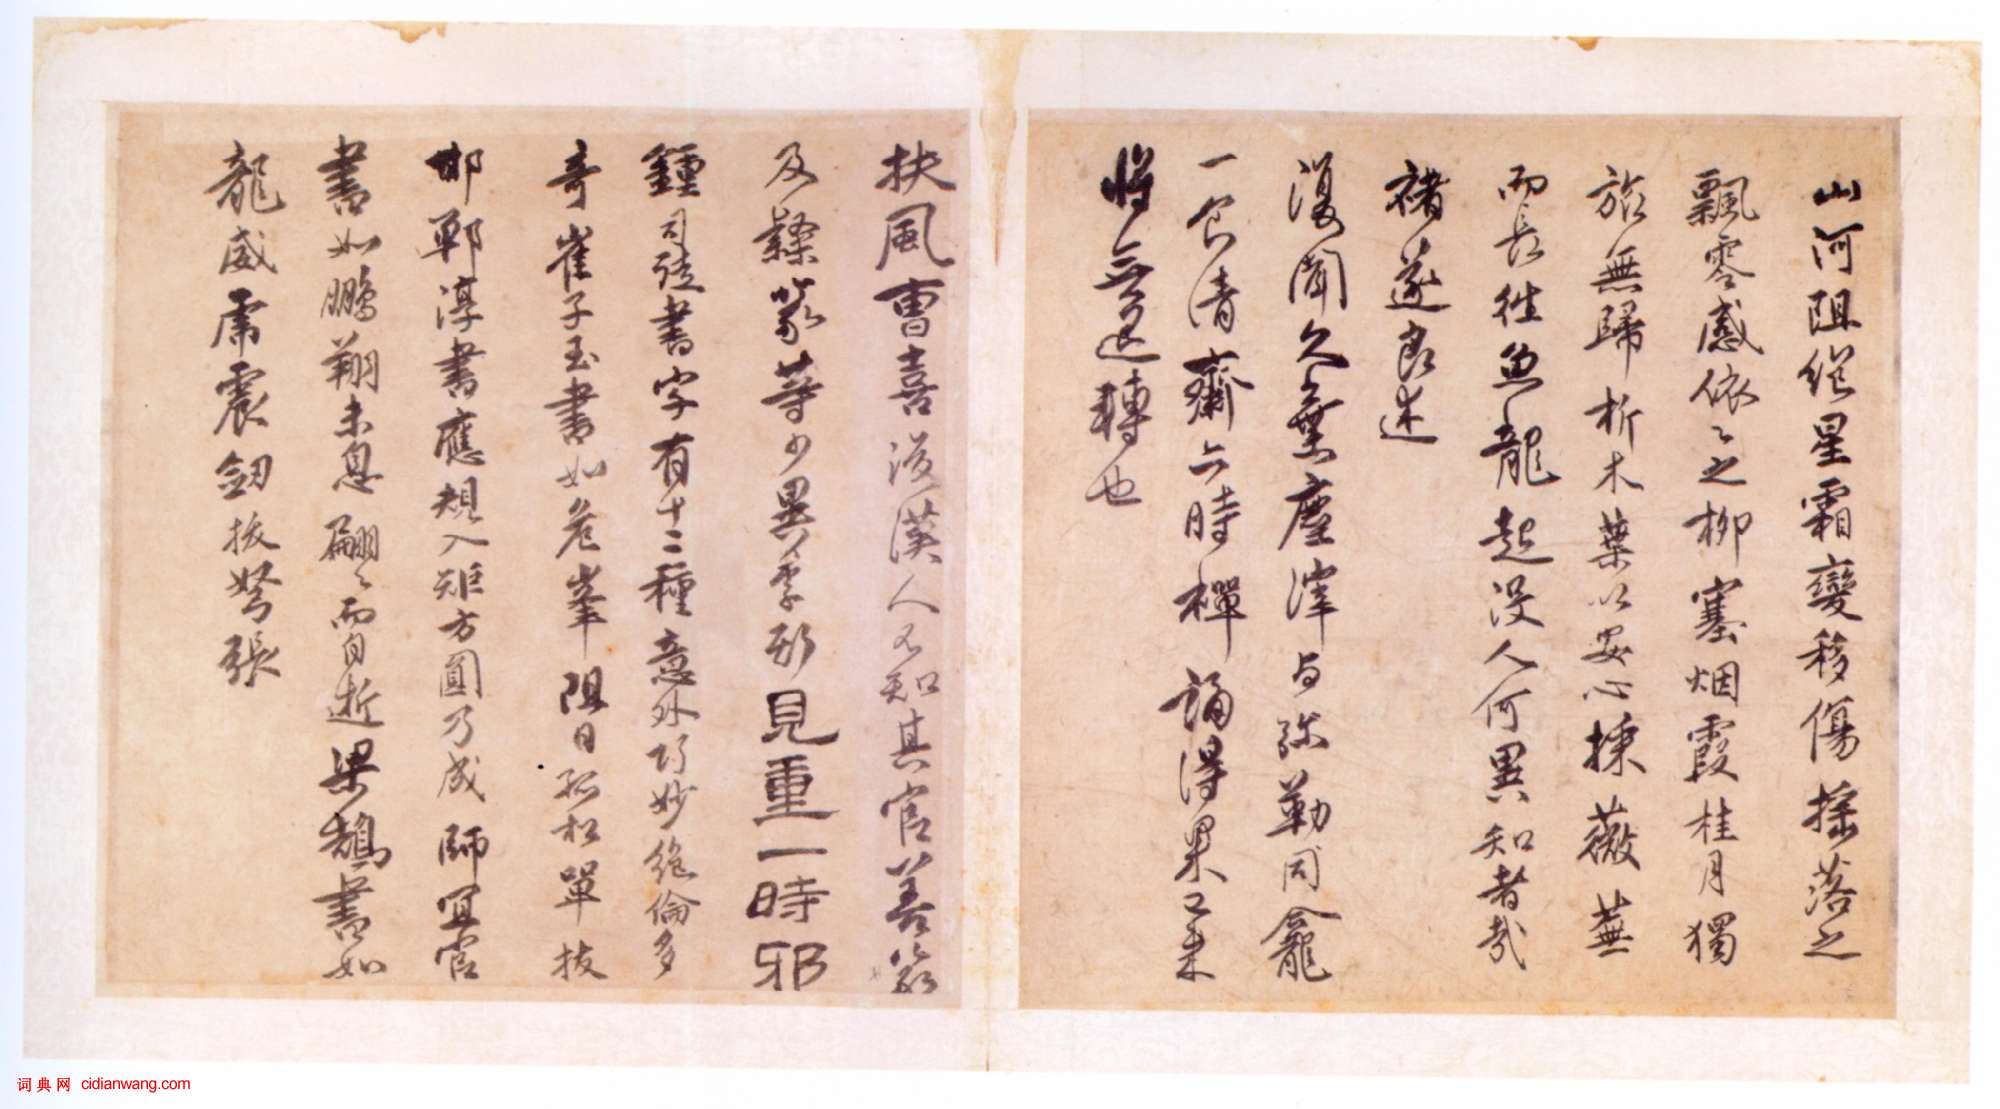 山河阻絕星霜變移傷搖落之
飄零感依〻之柳塞烟霞桂月獨
旅無歸折木葉以安心採薇蕪
而長性魚龍起沒人何異知者哉
褚遂良述
復聞久棄塵滓与弥勒同龕
一食清齋六時禪誦得果已來
將無退轉也
扶風曹喜後漢人不知其官善篆
及隸篆等少異李斯見重一時邪
鍾司徒書字有十二種意外巧妙絕倫多
奇崔子玉書如危峯阻日孤松單枝
邯鄲淳書應規入矩方圓乃成師宜官
書如鵬翔未息翩〻而自逝梁鵠書如
龍威虎震劒拔弩張
词典网 cidianwang.com